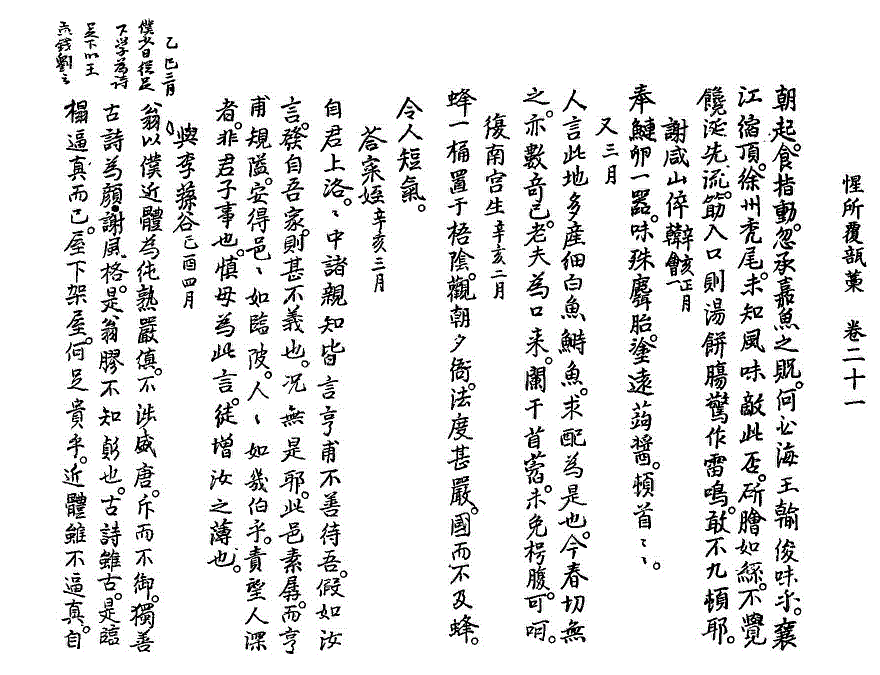 惺所覆瓿藁 卷二十一
朝起。食指動。忽承嘉魚之貺。何必海王翰俊味乎。襄
江縮項。徐州禿尾。未知風味敵此否。斫膾如絲。不覺
饞涎先流。筯入口則湯餅膓驚作雷鳴。敢不九頓耶。
謝咸山倅韓會一 辛亥正月
奉鰱卵一器。味殊麕胎。塗遠蒟醬。頓首ヽヽ。
又 三月
人言此地多産细白魚鰣魚。求配為是也。今春切無
之。亦數奇已。老夫為口来。闌干首蓿。未免枵腹。可呵。
復南宫生 辛亥二月
蜂一桶置于梧陰。觀朝夕衙。法度甚嚴。國而不及蜂。
令人短氣。
答寀姪 辛亥三月
自君上洛。ヽ中諸親知皆言亨甫不善待吾。假如汝
言。發自吾家。則甚不義也。况無是耶。此邑素孱。而亨
甫規隘。安得邑ヽ如臨陂。人ヽ如幾伯乎。責望人深
者。非君子事也。慎毋為此言。徒增汝之薄也。
與李蓀谷 己酉四月
翁以僕近體為純熟嚴縝。不涉盛唐。斥而不御。獨善
古詩為顔謝風格。是翁膠不知變也。古詩雖古。是臨
榻逼真而已。屋下架屋。何足貴乎。近體雖不逼真。自
乙巳三月
僕少日從足
下學為詩
足下以王